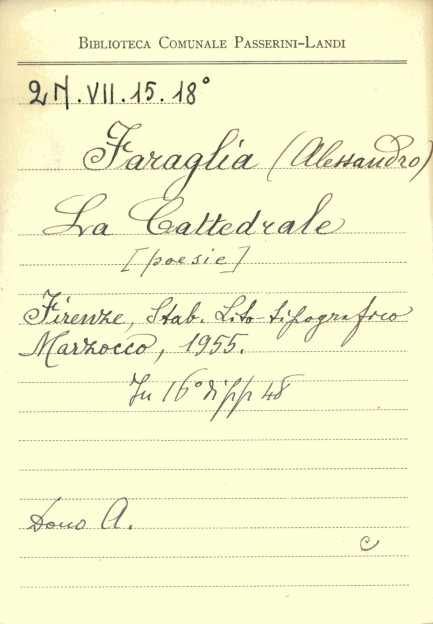 BIBLIOTECA COMUNALE PASSERINI-LANDI
2N.VII.15.18°
Faraglia (Alessandro)
La Cattedrale
[poesie]
Firenze, Stab. Lito-tipografico
Marzocco, 1955.
In 16° di pp 48
Dono A.
C